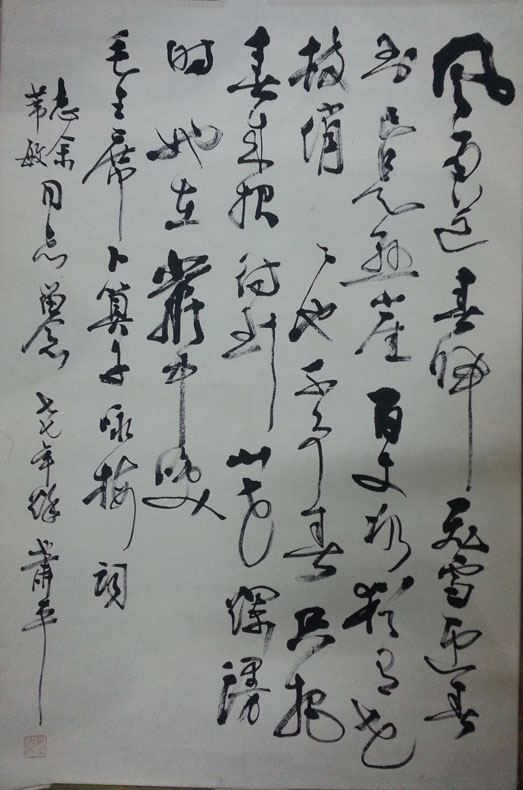 风雨送春归飞雪迎春
到已是悬崖百丈冰犹有花
枝俏〻也不争春只把
春来报待到山花烂漫
时她在丛中笑
毛主席卜算子咏梅词
同志留念七七年萧平